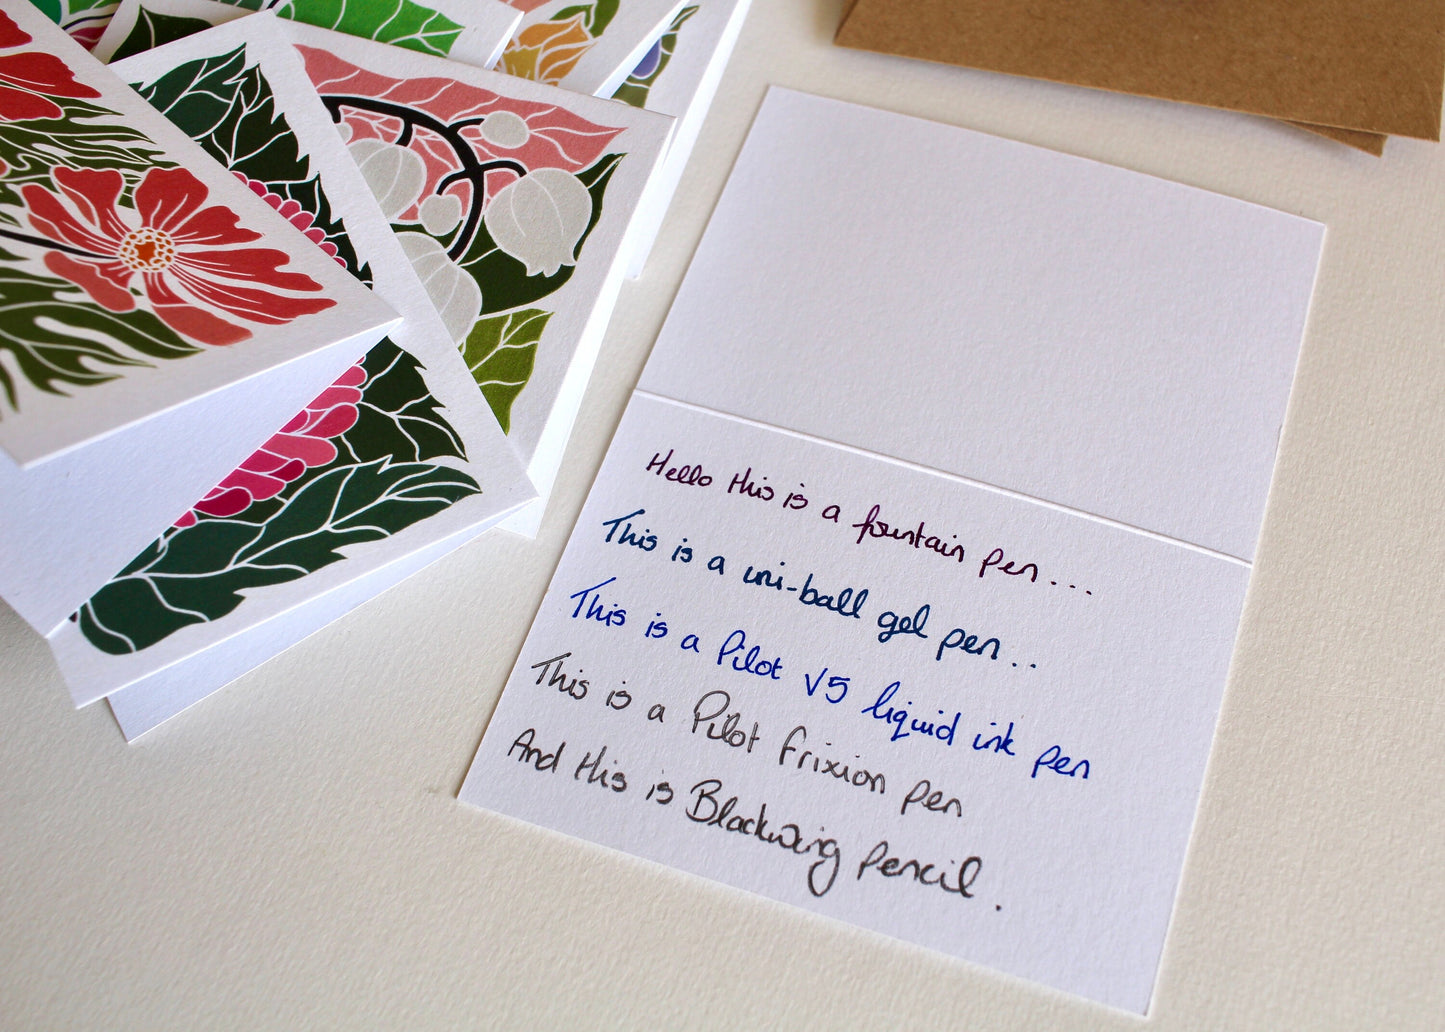 Hello this is a fountain pen...
This is a uni-ball gel pen..
This is a Pilot V5 liquid ink pen
This is a Pilot frixion pen
And this is Blackwing pencil.